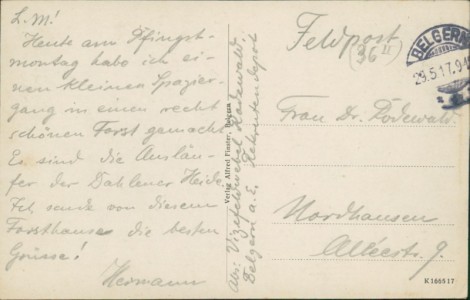 L. M!
Heute am Pfingst-
montag habe ich ei-
nen kleinen Spazier-
gang in einen recht
schönen Forst gemacht
Es sind die Ausläu-
fer der Dahlener Heide.
Ich sende von diesem
Forsthause die besten
Grüsse!
Hermann
Verlag Alfred Finster, Belgern
Abs: Vizefeldwebel Rödewald,
Belgern a. E. Rekrutendepot
Feldpost
(36 II)
BELGERN
29.5.17.9-1
Frau Dr. Rödewald
Nordhausen
Alleestr. 9.
K 166517